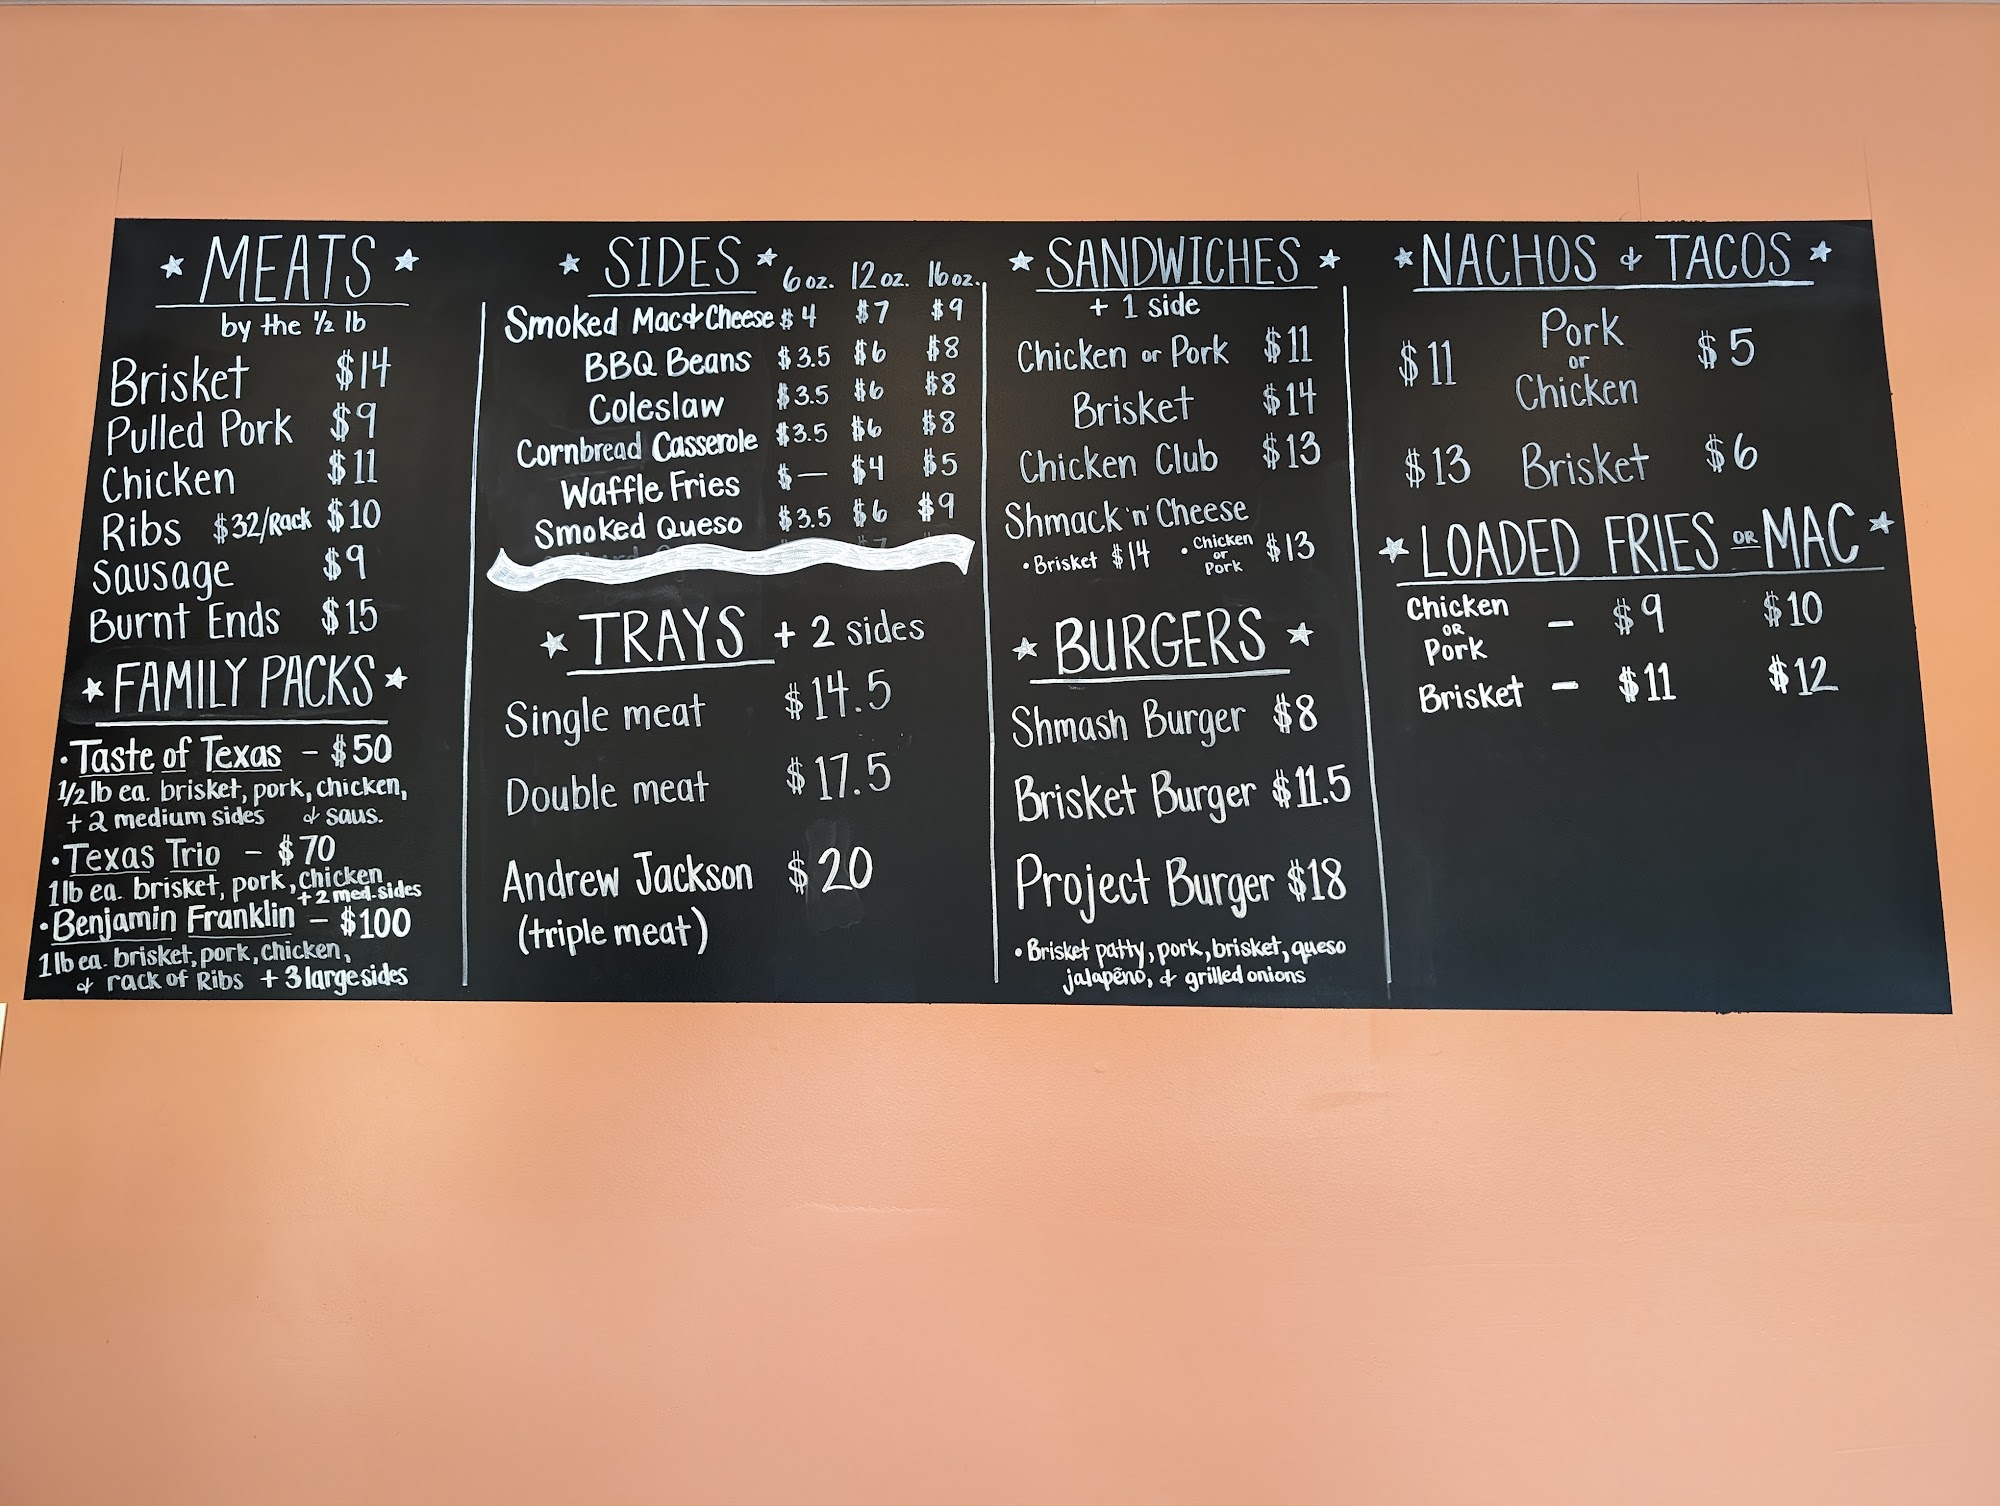 MEATS
by the 1/2 lb
Brisket $14
Pulled Pork $9
Chicken $11
Ribs $32/Rack $10
Sausage $9
Burnt Ends $15
FAMILY PACKS
• Taste of Texas - $50
1/2 lb ea. brisket, pork, chicken,
+ 2 medium sides & saus.
• Texas Trio - $70
1 lb ea. brisket, pork, chicken
+ 2 med. sides
• Benjamin Franklin - $100
1 lb ea. brisket, pork, chicken,
& rack of Ribs + 3 large sides
SIDES 6 oz. 12 oz. 16 oz.
Smoked Mac & Cheese $4 $7 $9
BBQ Beans $3.5 $6 $8
Coleslaw $3.5 $6 $8
Cornbread Casserole $3.5 $6 $8
Waffle Fries $— $4 $5
Smoked Queso $3.5 $6 $9
TRAYS + 2 sides
Single meat $14.5
Double meat $17.5
Andrew Jackson $20
(triple meat)
SANDWICHES
+ 1 side
Chicken or Pork $11
Brisket $14
Chicken Club $13
Shmack 'n' Cheese
• Brisket $14 • Chicken or Pork $13
BURGERS
Shmash Burger $8
Brisket Burger $11.5
Project Burger $18
• Brisket patty, pork, brisket, queso
jalapeño, & grilled onions
NACHOS & TACOS
$11 Pork or Chicken $5
$13 Brisket $6
LOADED FRIES OR MAC
Chicken OR Pork - $9 $10
Brisket - $11 $12